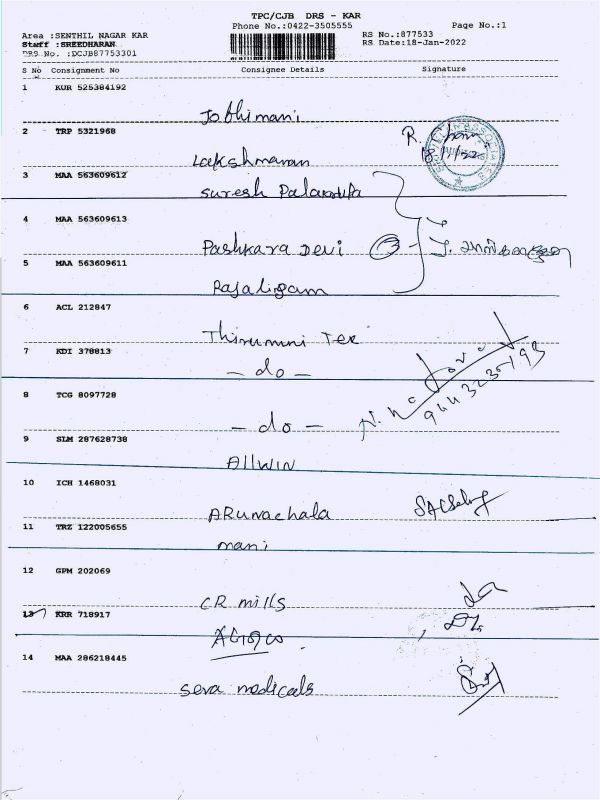 TPC/CJB DRS - KAR
Phone No.:0422-3505555 Page No.:1
Area :SENTHIL NAGAR KAR RS No.:877533
Staff :SREEDHARAN RS Date:18-Jan-2022
DRS No. :DCJB87753301
S No Consignment No Consignee Details Signature
1 KUR 525384192
Jothimani
2 TRP 5321968
Lakshmanan
3 MAA 563609612
Suresh
4 MAA 563609613
Pashkara Devi
5 MAA 563609611
Rajaligam
6 ACL 212847
Thirumni Tex
7 KDI 378813
- do -
8 TCG 8097728
- do -
9 SLM 287628738
Allwin
10 ICH 1468031
ARunachala
11 TRZ 122005655
mani
12 GPM 202069
CR mills
13 KRR 718917
14 MAA 286218445
Seva medicals